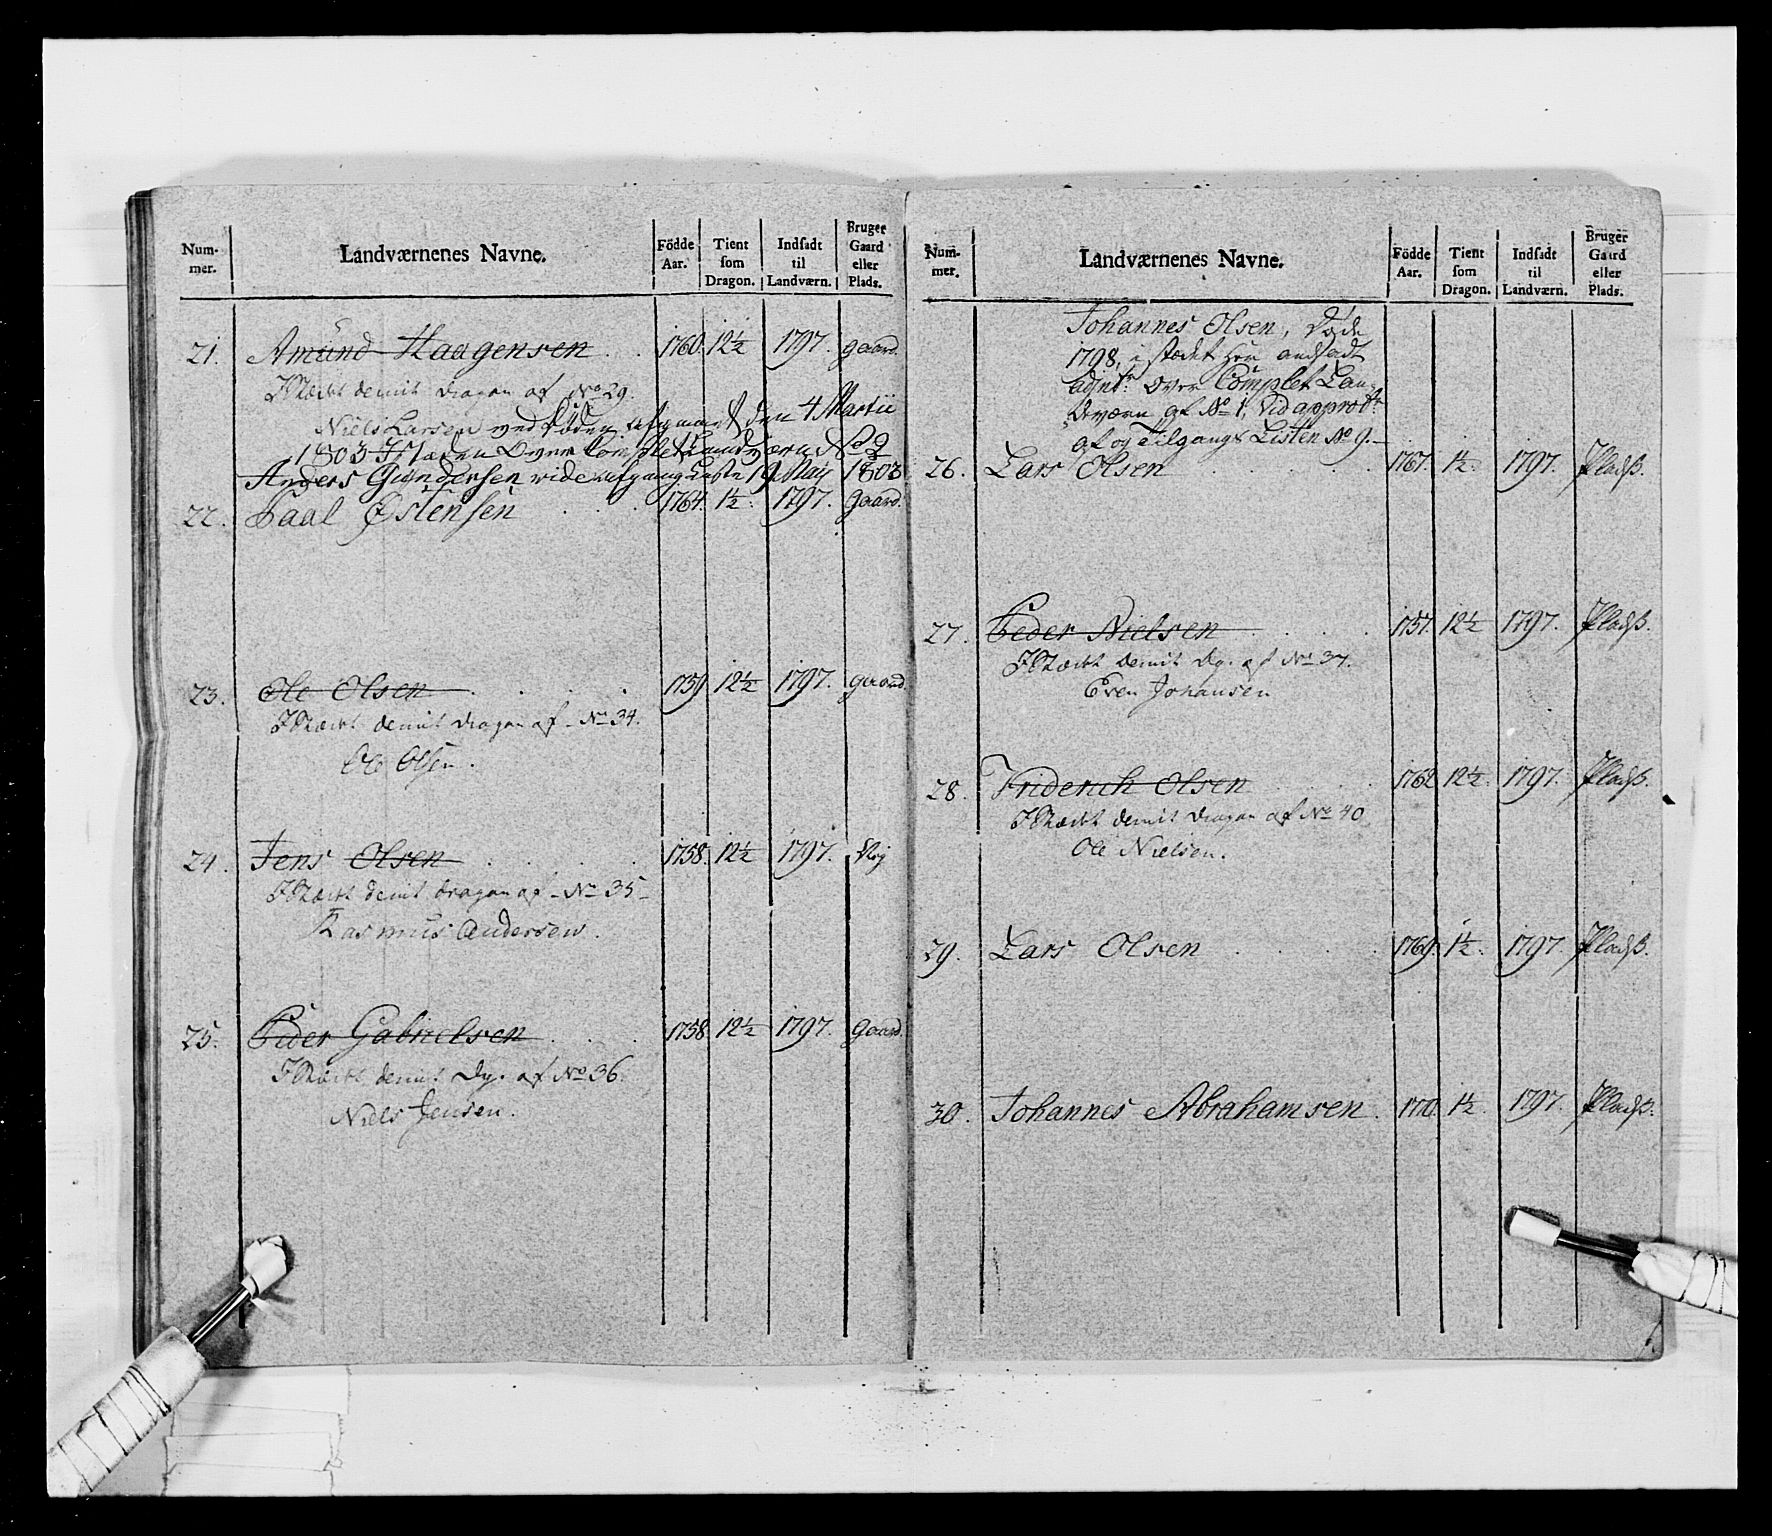 Num-mer. Landværnenes Navne. Födde Aar. Tient som Dragon. Indsadt til Landværn. Bruger Gaard eller Plads.
21. Amund Haagensen 1760. 12½ 1797. gaard.
I Stædet demit Dragon af No 29.
Niels Larsen ved Döden afgaaet den 4 Martii
1803 I Stæden Over Complet Landværn No 2
Anders Gundersen vide afgang Liste 19 Maij 1803
22. Paal Østensen 1764. 1½. 1797. Gaard.
23. Ole Olsen 1759 12½ 1797. gaard
I Stædet demit Dragon af No 34.
Ole Olsen.
24. Jens Olsen 1758. 12½ 1797. Nej
I Stædet demit Dragon af No 35
Rasmus Andersen.
25. Peder Gabrielsen 1758 12½ 1797. Gaard.
I Stædet demit Dg. af No 36.
Niels Jensen.
Num-mer. Landværnenes Navne. Födde Aar. Tient som Dragon. Indsadt til Landværn. Bruger Gaard eller Plads.
Johannes Olsen, Döde
1798, i stædet her andsadt
over Complet Lan-
dværn af No 1, Vid approb:
af og Tilgangs Listen No 9.
26. Lars Olsen 1767. 1½. 1797. Pladß.
27. Peder Nielsen 1757. 12½ 1797. Pladß.
I Stædet demit Dg. af No 37.
Even Johansen
28. Friderich Olsen 1762 12½. 1797. Pladß.
I Stædet demit Dragon af No 40
Ole Nielsen.
29. Lars Olsen 1769. 1½. 1797. Pladß.
30. Johannes Abrahamsen. 1770. 1½. 1797. Pladß.